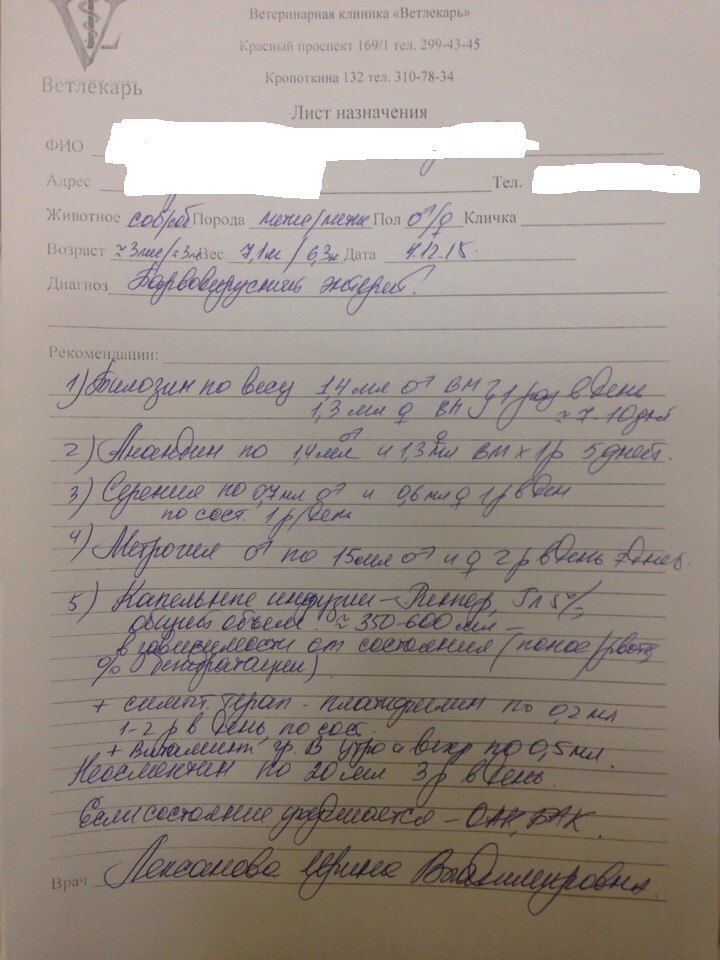 Ветеринарная клиника «Ветлекарь»
Красный проспект 169/1 тел. 299-43-45
Кропоткина 132 тел. 310-78-34
Ветлекарь
Лист назначения
ФИО
Адрес Тел.
Животное собак Порода метис/метис Пол ♂/♀ Кличка
Возраст ≈3мес/≈3м Вес 7,1кг / 6,3кг Дата 4.12.15.
Диагноз Парвовирусный энтерит.
Рекомендации:
1) Тилозин по весу 1,4 мл ♂ вм } 1 раз в день
1,3 мл ♀ вм ≈ 7-10 дней
2) Анандин по 1,4мл ♂ и 1,3мл ♀ вм х 1р 5 дней.
3) Серения по 0,7мл ♂ и 0,6мл ♀ 1р в ден
по сост. 1 р/день
4) Метрогил ♂ по 15мл ♂ и ♀ 2р в день 7дней.
5) Капельные инфузии – Рингер, Гл 5%,
общий объем ≈ 350-600 мл –
в зависимости от состояния (понос/рвота,
% дегидратации)
+ симпт. терап - платифилин по 0,2 мл
1-2 р в день, по сост.
+ Витамины гр. В утро и вечер по 0,5мл.
Неосмектин по 20 мл 3 р в день.
Если состояние ухудшается – ОАК, БАК.
Врач Ирина Владимировна.